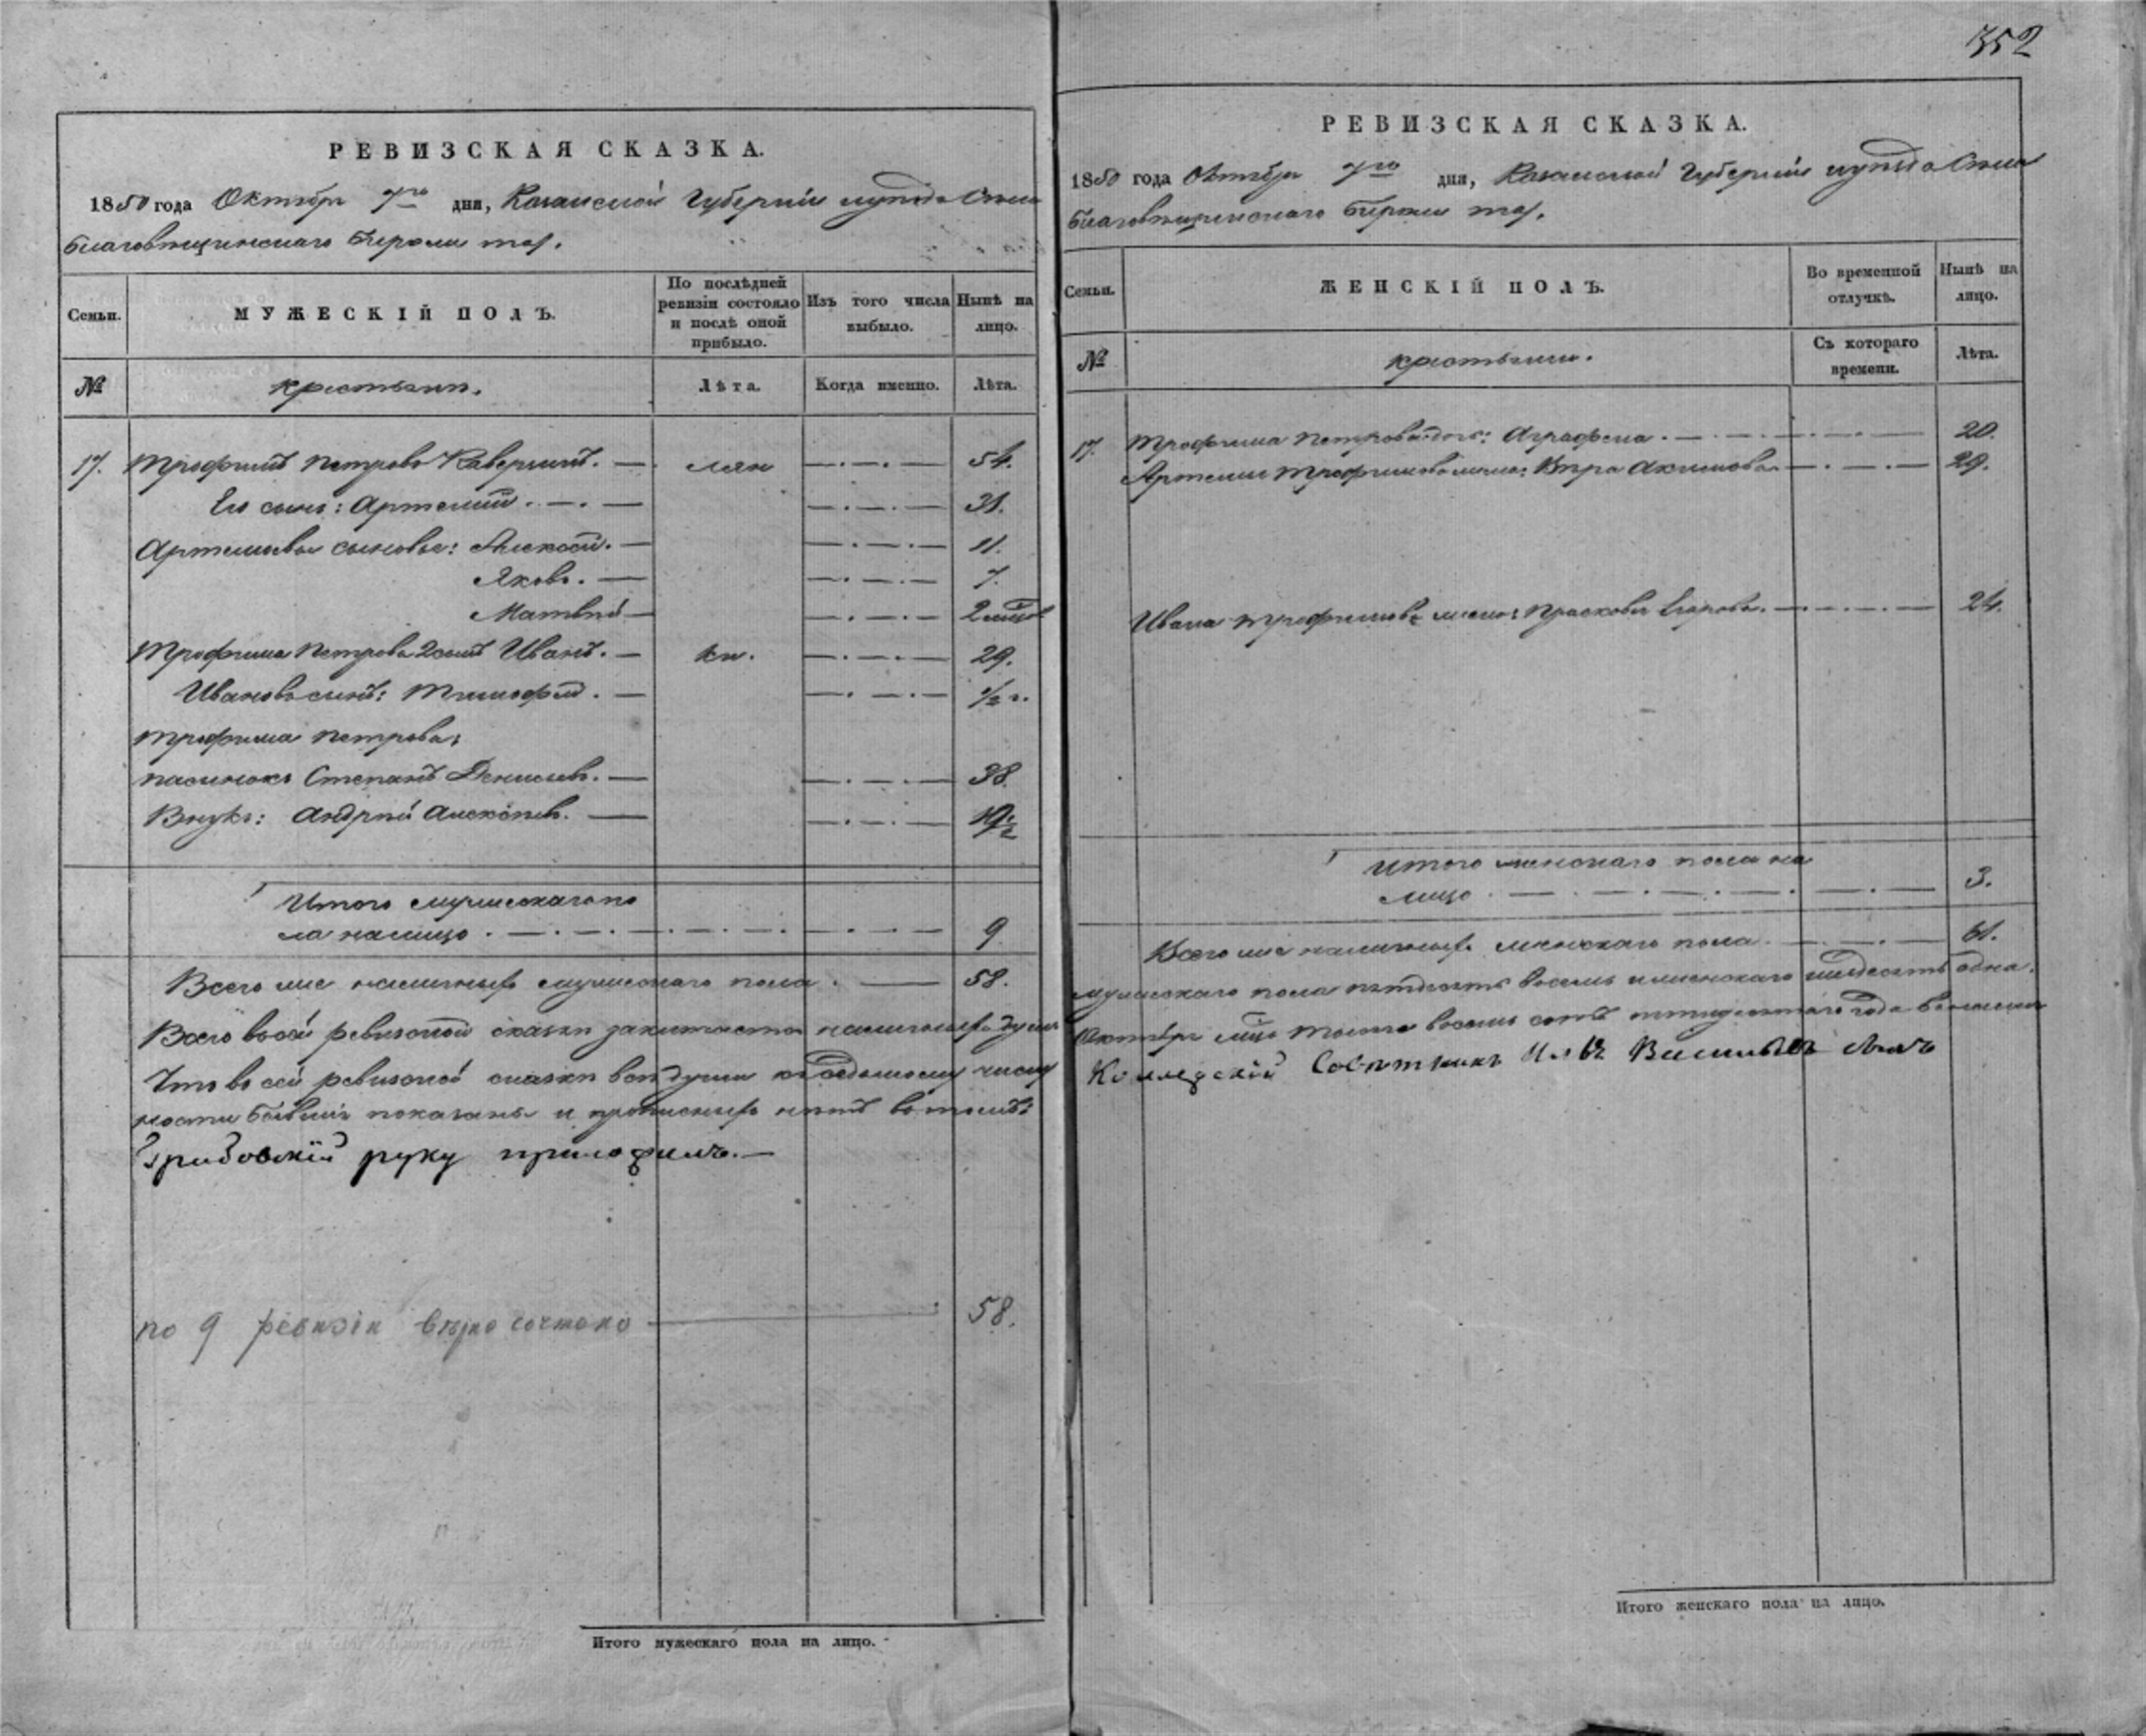 352
РЕВИЗСКАЯ СКАЗКА.
1850 года Октября 7го дня, Казанской Губернии и уезда Села
Благовещенскаго
Семьи.
МУЖЕСКІЙ ПОЛЪ.
По послѣдней ревизіи состояло и послѣ оной прибыло.
Изъ того числа выбыло.
Нынѣ на лицо.
№
крестьяни.
Лѣта.
Когда именно.
Лѣта.
17. Трофимъ Петровъ 54.
Его сынъ: Артемий 31.
Артемьевы сыновье: Алексей. 11.
Яковъ. 7.
Матвей 2
Трофима Петрова 2 сынъ Иванъ. 29.
Ивановъ сынъ: Тимофей. 1/2 г.
Трофима Петрова:
пасынокъ Степанъ Денисьевъ. 38.
Внукъ: Андрей Алексеевъ.
Итого мужескаго по
ла налицо 9
Всего наличныхъ мужескаго пола. 58.
Всего в сей ревизской сказки наличныхъ душъ
Что в сей ревизской сказки все души к числу
показаны и прописныхъ нетъ в томъ:
руку приложилъ.
по 9 ревизіи верно 58.
Итого мужескаго пола на лицо.
РЕВИЗСКАЯ СКАЗКА.
1850 года Октября 7го дня, Казанской Губернии и уезда Села
Благовещенскаго
Семьи.
ЖЕНСКІЙ ПОЛЪ.
Во временной отлучкѣ.
Нынѣ на лицо.
№
крестьяни.
Съ котораго времени.
Лѣта.
17. Трофима Петрова дочь: Аграфена. 20.
Артемия Трофимова жена: Вера Акимова 29.
Ивана Трофимова жена: Прасковья Егорова. 24.
Итого женскаго пола на
лицо 3.
Всего наличныхъ женскаго пола. 61.
мужескаго пола пятдесятъ восемь и женскаго шесдесятъ одна.
Октября тысяча восемь сотъ пятидесятаго года
Итого женскаго пола на лицо.